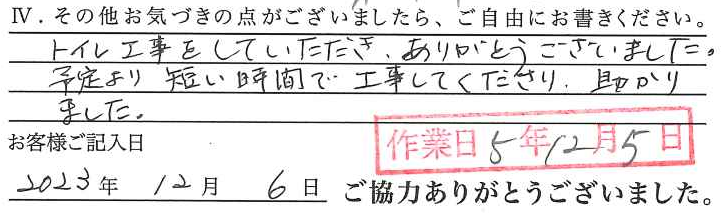 Ⅳ．その他お気づきの点がございましたら、ご自由にお書きください。
トイレ工事をしていただき、ありがとうございました。
予定より短い時間で工事してくださり、助かり
ました。
お客様ご記入日
作業日5年12月5日
2023年12月6日 ご協力ありがとうございました。